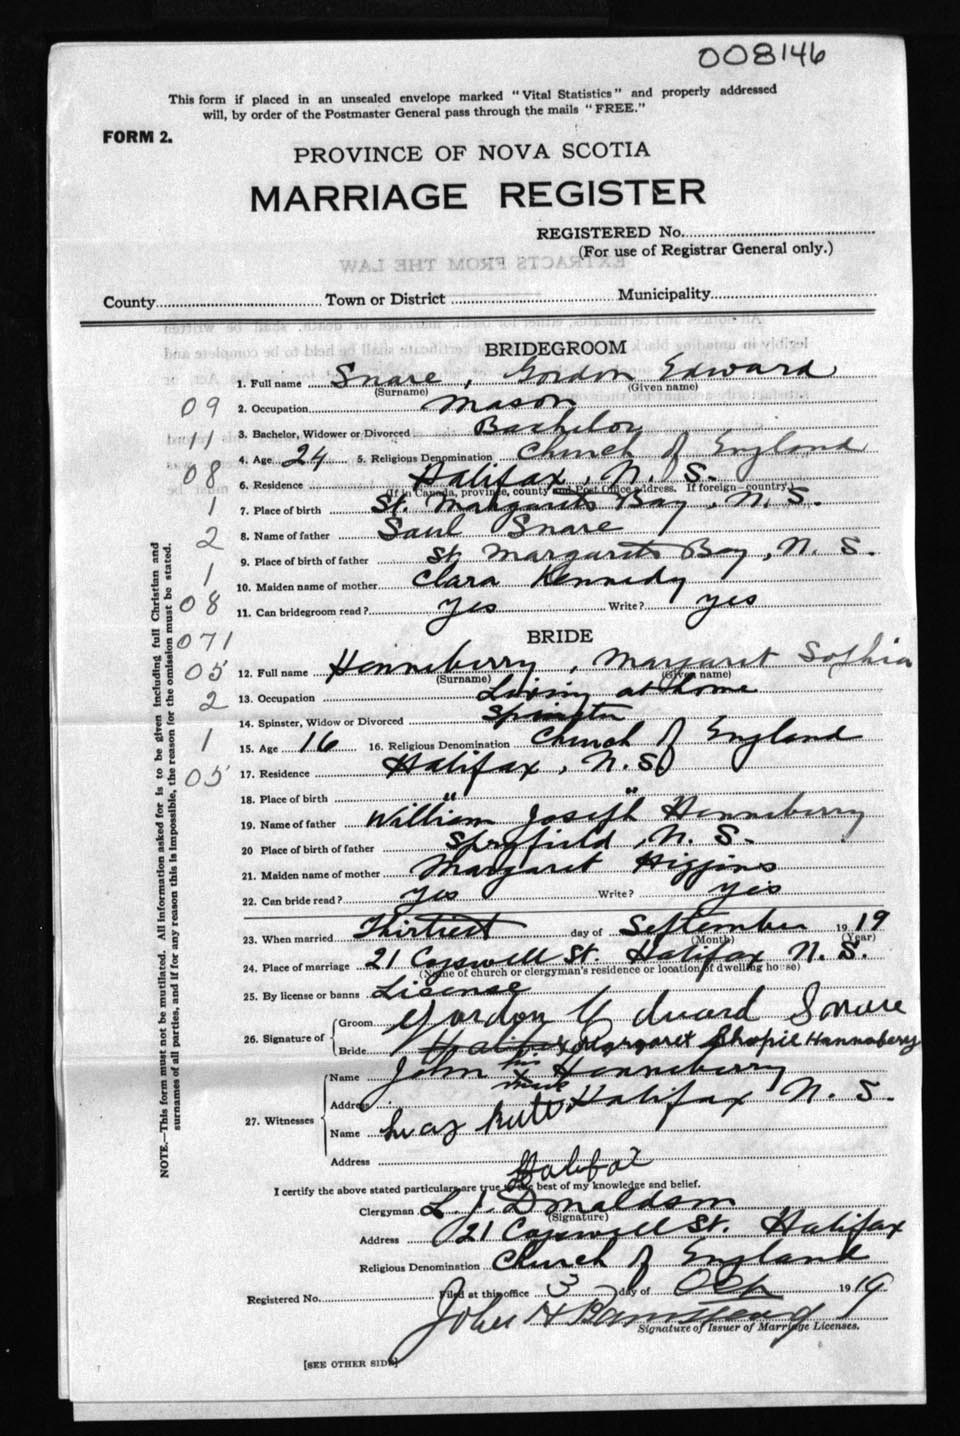 008146
This form if placed in an unsealed envelope marked "Vital Statistics" and properly addressed
will, by order of the Postmaster General pass through the mails "FREE."
FORM 2.
PROVINCE OF NOVA SCOTIA
MARRIAGE REGISTER
REGISTERED No.
(For use of Registrar General only.)
EXTRACTS FROM THE LAW
County Town or District Municipality
BRIDEGROOM
1. Full name Snare, Gordon Edward
(Surname) (Given name)
09 2. Occupation Mason
11 3. Bachelor, Widower or Divorced Bachelor
4. Age 24 5. Religious Denomination Church of England
08 6. Residence Halifax, N. S.
(If in Canada, province, county and Post Office address. If foreign—country.)
1 7. Place of birth St. Margarets Bay, N. S.
2 8. Name of father Saul Snare
9. Place of birth of father St Margarets Bay, N. S.
1 10. Maiden name of mother Clara Kennedy
08 11. Can bridegroom read? yes Write? yes
071 BRIDE
05 12. Full name Henneberry, Margaret Sophia
(Surname) (Given name)
2 13. Occupation Living at home
14. Spinster, Widow or Divorced Spinster
1 15. Age 16 16. Religious Denomination Church of England
05 17. Residence Halifax, N. S.
18. Place of birth " "
19. Name of father William Joseph Henneberry
20 Place of birth of father Spryfield, N. S.
21. Maiden name of mother Margaret Higgins
22. Can bride read? yes Write? yes
23. When married Thirtiest day of September 1919
(Month) (Year)
24. Place of marriage 21 Cogswell St. Halifax N. S.
(Name of church or clergyman's residence or location of dwelling house)
25. By license or banns License
26. Signature of Groom Gordon Edward Snare
Bride Margaret Shopie Hannabery
27. Witnesses Name John his x mark Henneberry
Address Halifax N. S.
Name
Address Halifax
I certify the above stated particulars are true to the best of my knowledge and belief.
Clergyman L. J. Donaldson
(Signature)
Address 21 Cogswell St. Halifax
Religious Denomination Church of England
Registered No. Filed at this office 3 day of Oct 1919
John H Barnstead
Signature of Issuer of Marriage Licenses.
[SEE OTHER SIDE]
NOTE.—This form must not be mutilated. All information asked for is to be given including full Christian and
surnames of all parties, and if for any reason this is impossible, the reason for the omission must be stated.